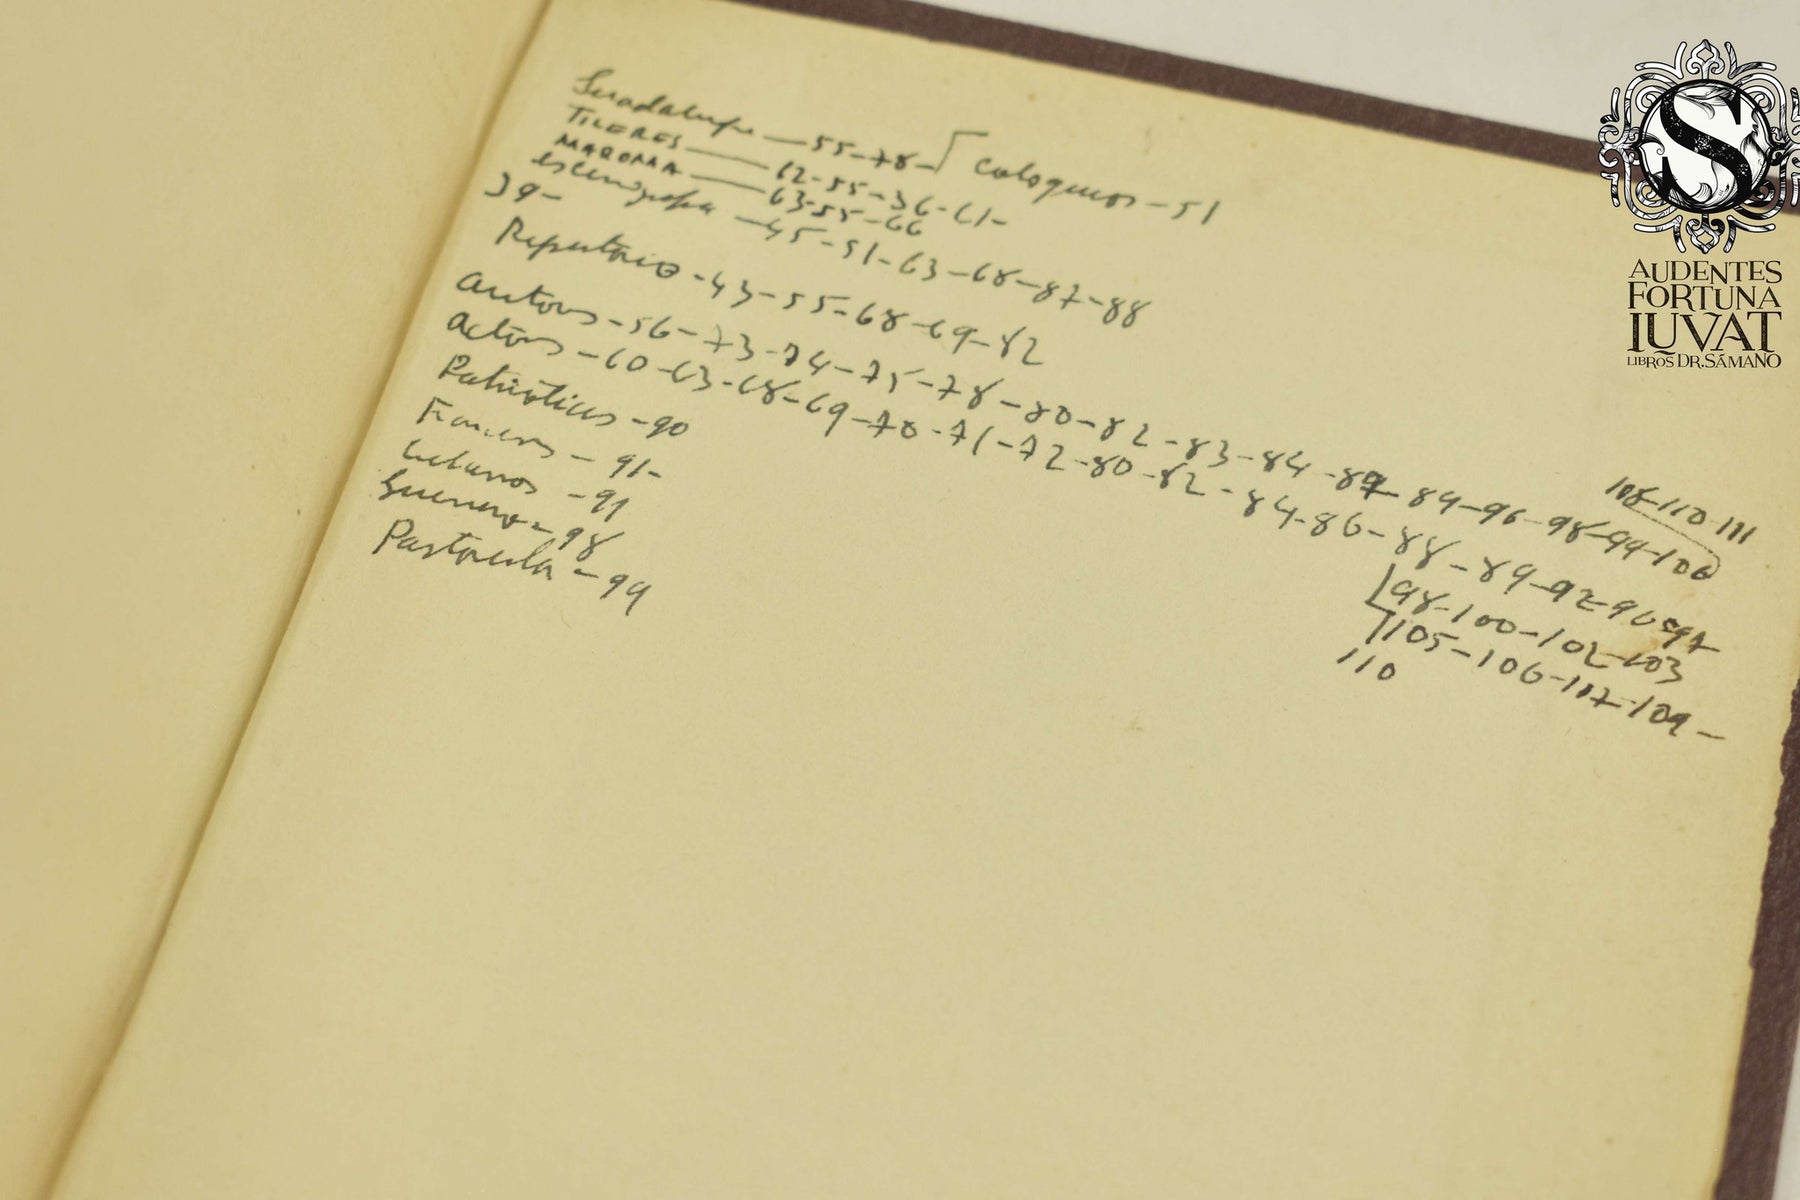 Guadalupe — 55-78- Coloquios - 51
TITERES — 62-55-36-61-
MAROMA — 63-55-66
escenografia — 45-51-63-68-87-88
39-
Repertorio - 43-55-68-69-82
autores - 56-73-74-75-78-80-82-83-84-87-89-96-98-99-106
108-110-111
actores - 60-63-68-69-70-71-72-80-82-84-86-88-89-92-96-97-
98-100-102-103
105-106-107-109-
110
Patrióticas - 90
- 91-
- 91
Guerrero - 98
Pastorela - 99
S
AUDENTES
FORTUNA
IUVAT
LIBROS DR. SÁMANO